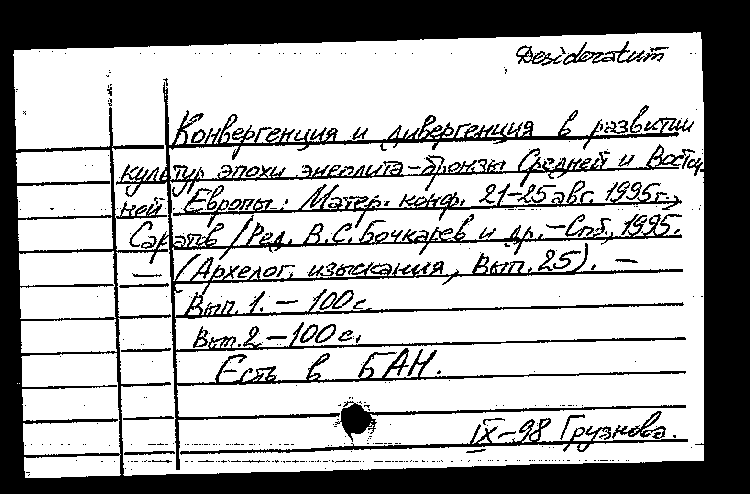 Desideratum
Конвергенция и дивергенция в развитии
культур эпохи энеолита-бронзы Средней и Восточ
ней Европы: Матер. конф. 21-25 авг. 1995г.,
Саратов / Ред. В.С. Бочкарев и др. - Спб., 1995.
— (Археолог. изыскания, Вып. 25). —
Вып. 1. - 100 с.
Вып. 2 - 100 с.
Есть в БАН.
IX-98 Грузнова.